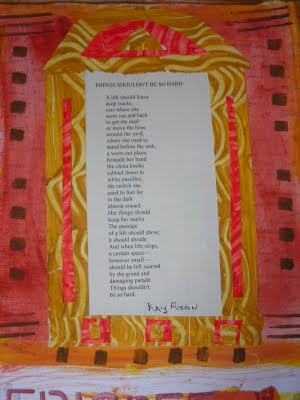 THINGS SHOULDN'T BE SO HARD
A life should leave
deep tracks:
ruts where she
went out and back
to get the mail
or move the hose
around the yard,
where she used to
stand before the sink,
a worn-out place;
beneath her hand
the china knobs
rubbed down to
white pastilles;
the switch she
used to feel for
in the dark
almost erased.
Her things should
keep her marks.
The passage
of a life should show;
it should abrade.
And when life stops,
a certain space—
however small—
should be left scarred
by the grand and
damaging parade.
Things shouldn't
be so hard.
KAY RYAN